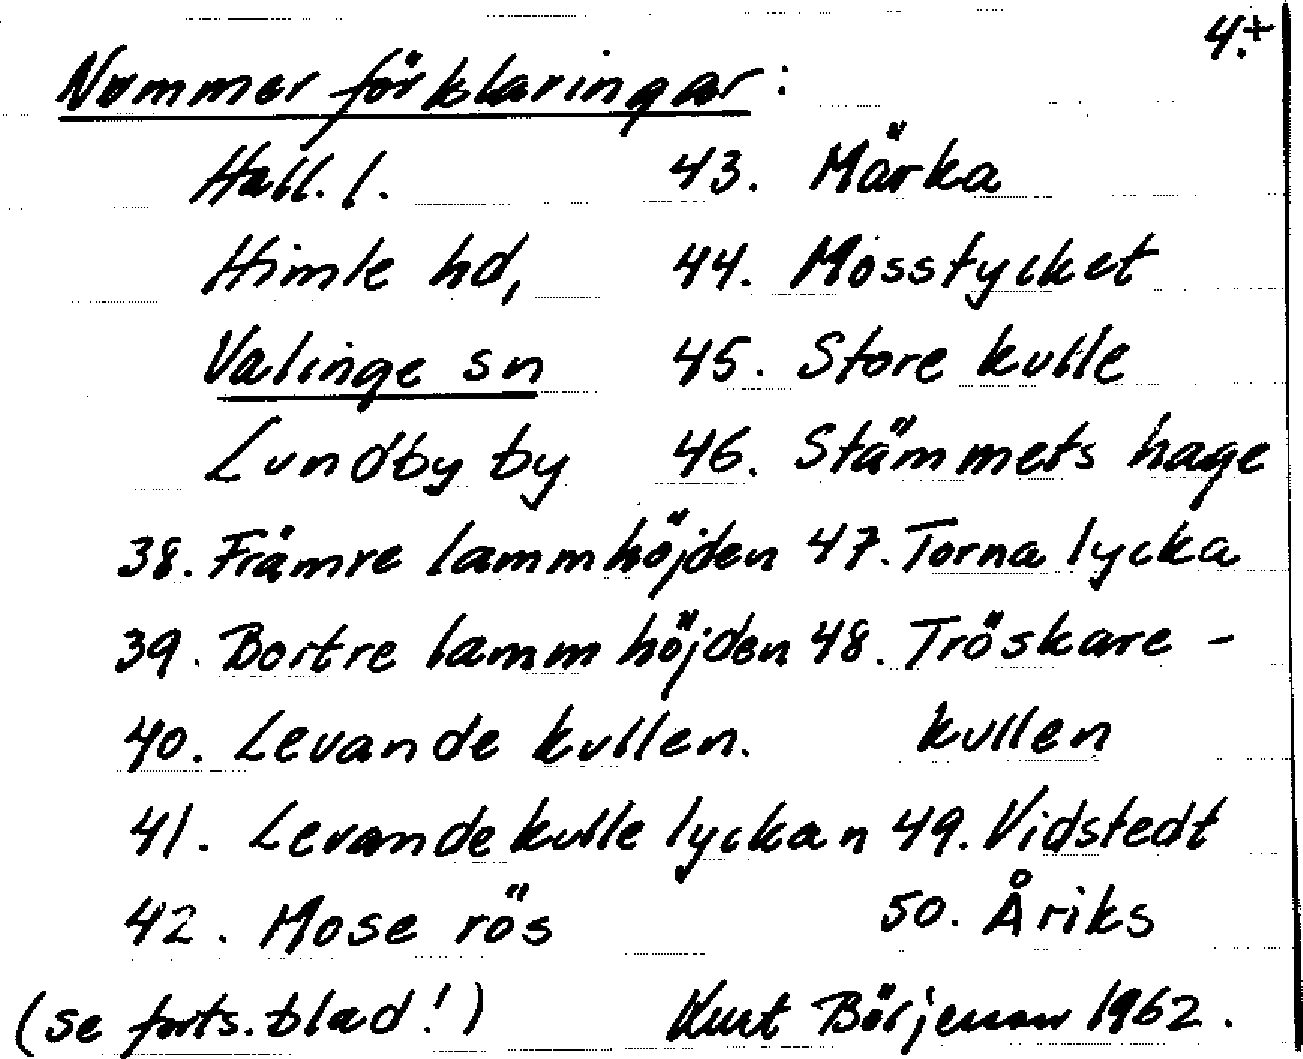 4.+
Nummer förklaringar:
Hall. l.
Himle hd,
Valinge sn
Lundby by
38. Främre lammhöjden
39. Bortre lammhöjden
40. Levande kullen.
41. Levande kulle lyckan
42. Mose rös
43. Märka
44. Mosstycket
45. Store kulle
46. Stämmets hage
47. Torna lycka
48. Tröskare-
kullen
49. Vidstedt
50. Åriks
(se forts. blad!)
Kurt Börjesson 1962.